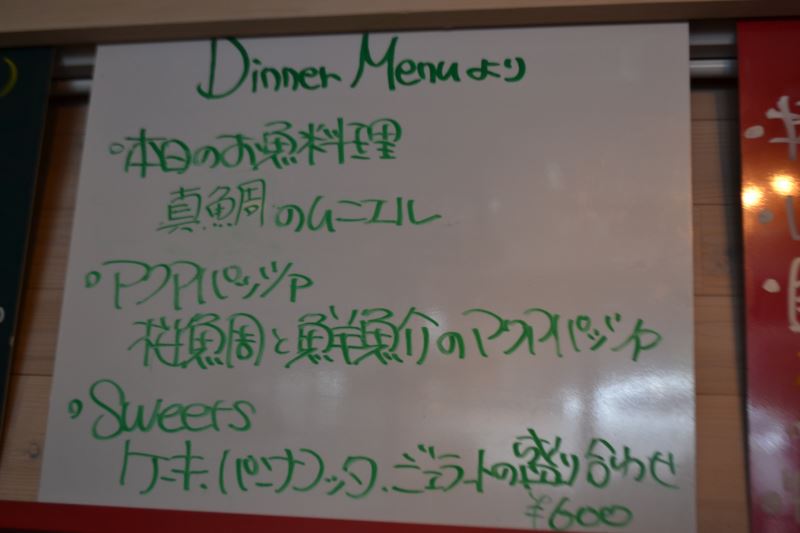 Dinner Menuより
・本日のお魚料理
真鯛のムニエル
・アクアパッツァ
桜鯛と鮮魚介のアクアパッツァ
・Sweets
ケーキ、パンナコッタ、ジェラートの盛り合わせ
¥600